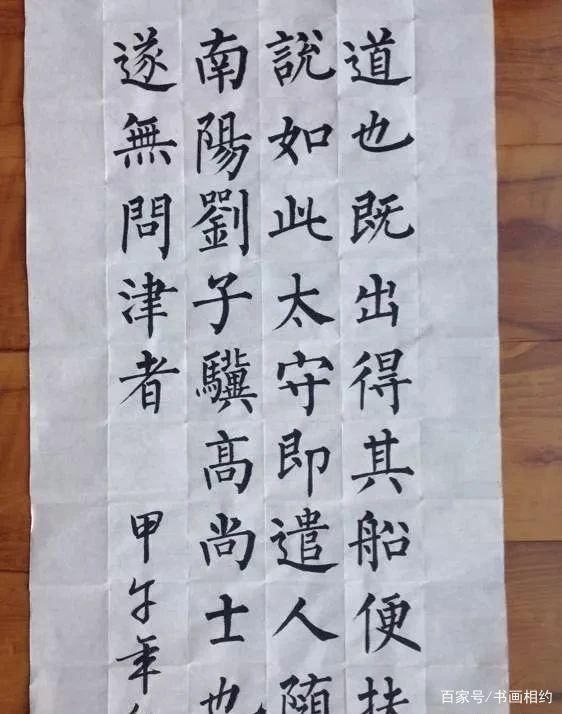 道也既出得其船便扶
說如此太守即遣人随
南陽劉子驥高尚士也
遂無問津者
甲午年
百家号/书画相约